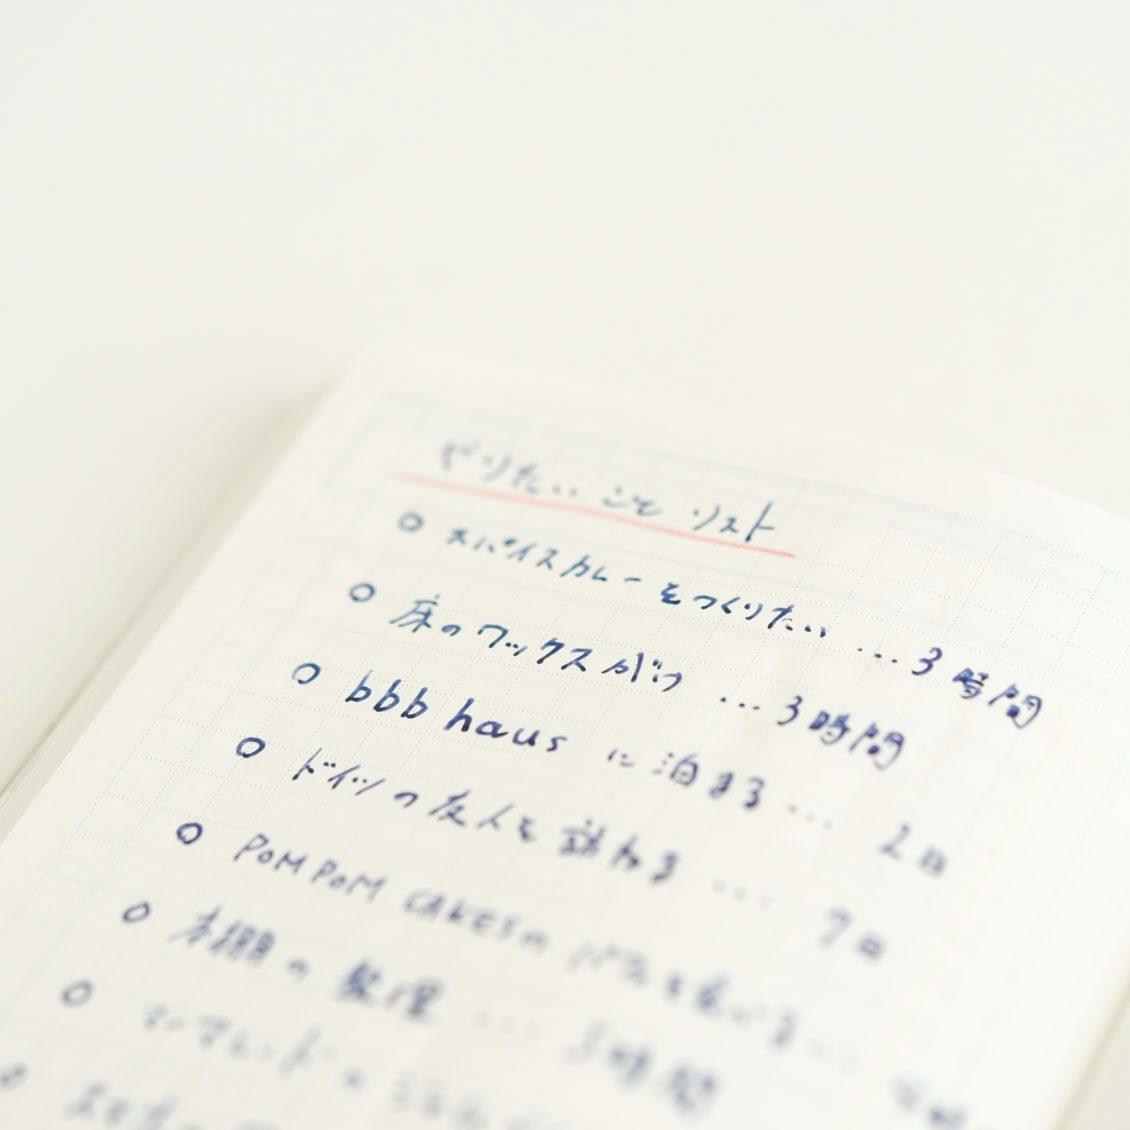 やりたいことリスト
スパイスカレーをつくりたい …3時間
床のワックスがけ …3時間
bbb haus に泊まる… 2日
ドイツの友人を訪ねる …. 7日
POMPOM CAKESの
本棚の整理 … 時間
マーマレード